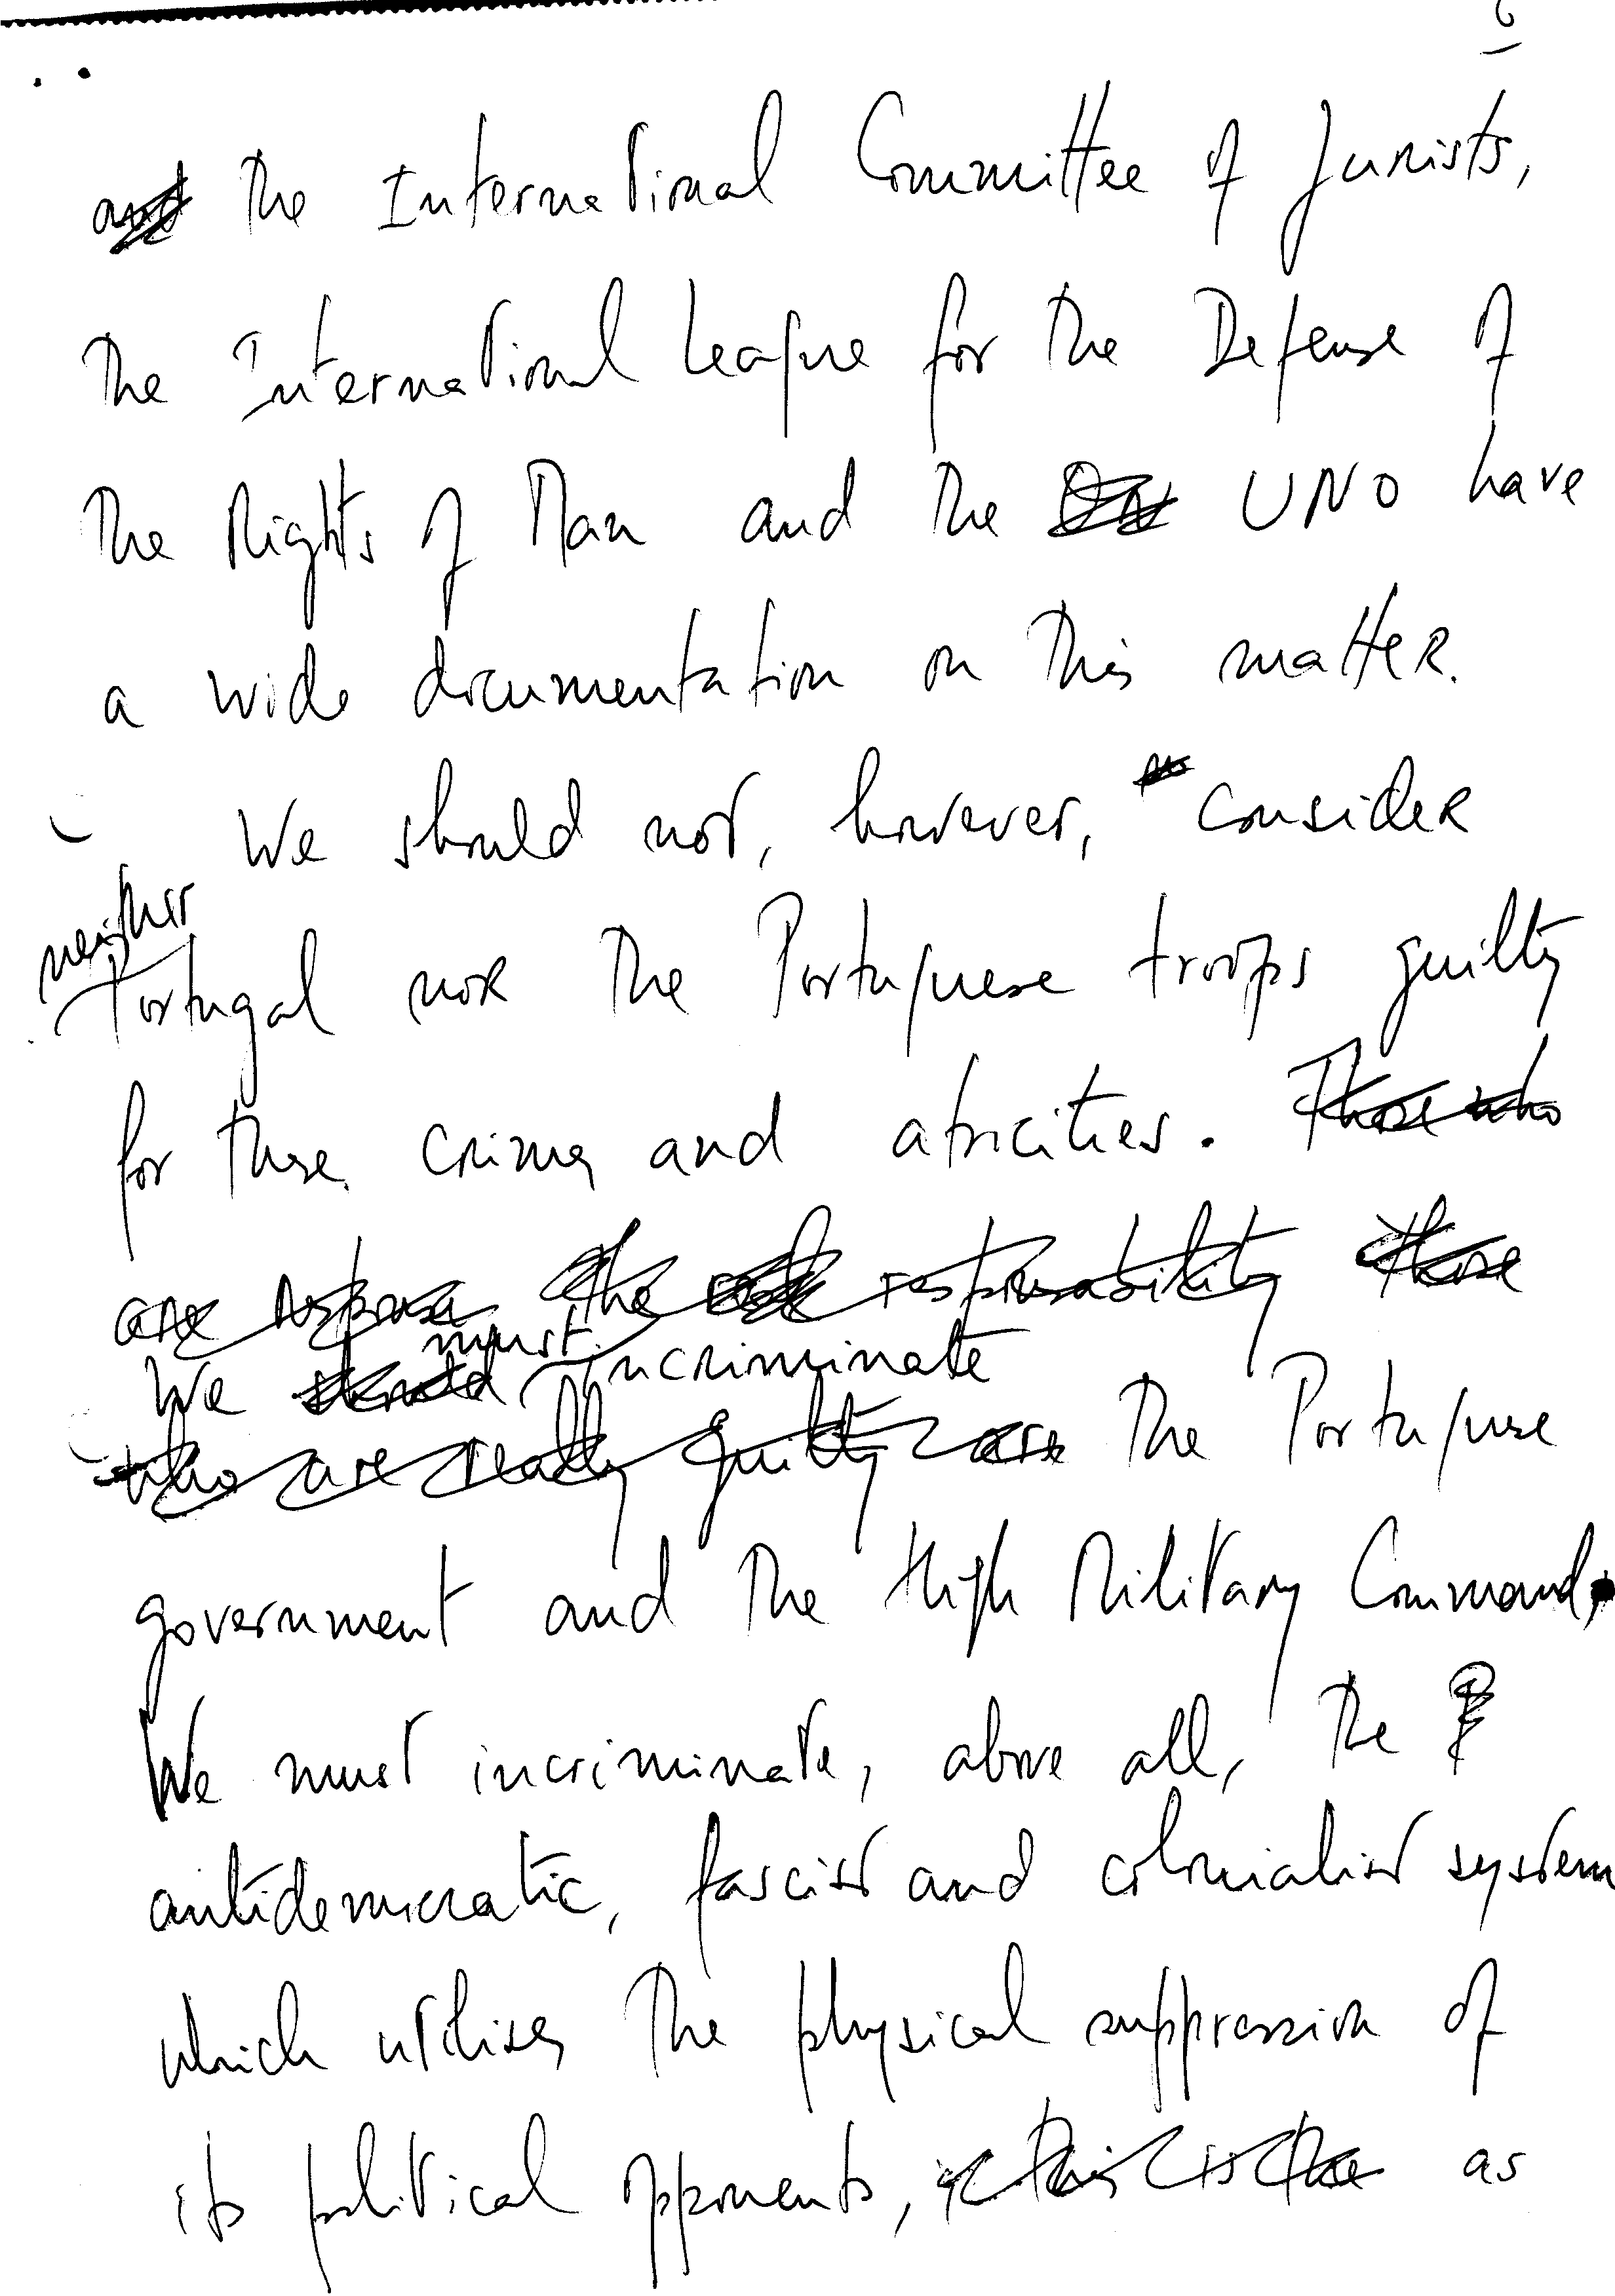 6
and the International Committee of Jurists,
the International League for the Defense of
the Rights of Man and the UNO have
a wide documentation on this matter.
We should not, however, consider
neither
Portugal nor the Portuguese troops guilty
for these crimes and atrocities. Those who
are respons the responsability those
must
We should incriminate
who are really guilty are the Portuguese
government and the High Military Command.
We must incriminate, above all, the
antidemocratic, fascist and colonialist system
which utilises the physical suppression of
its political opponents, this is the as